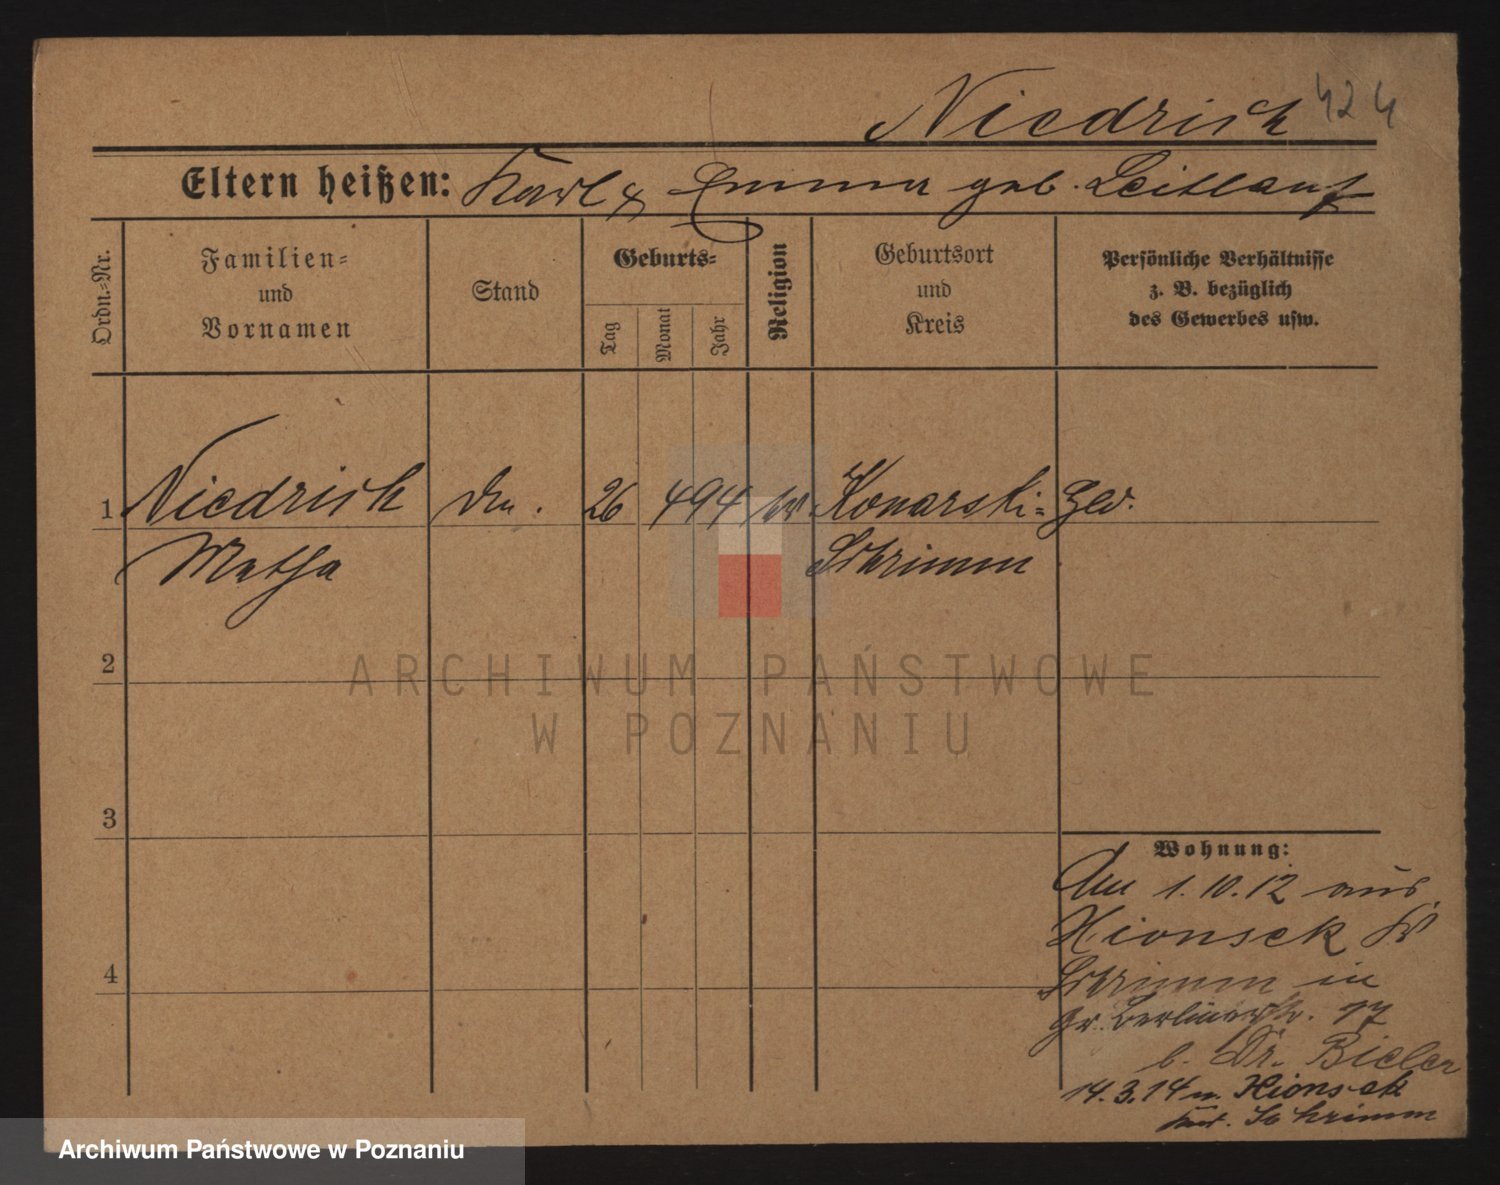 Niedrich 424
Eltern heißen: Karl & Emma geb. Leitlauf
Ordn.-Nr.
Familien-
und
Vornamen
Stand
Geburts-
Tag
Monat
Jahr
Religion
Geburtsort
und
Kreis
Persönliche Verhältnisse
z. B. bezüglich
des Gewerbes usw.
1 Niedrich 26 4 94 Konarski-
Schrimm
2
3
4
Wohnung:
Am 1.10.12 aus
Xionsek Kr
Schrimm in
Gr. Berlinerstr. 97
b. Dr. Bieler
14.3.14 n. Xionsek
Schrimm
ARCHIWUM PAŃSTWOWE
W POZNANIU
Archiwum Państwowe w Poznaniu